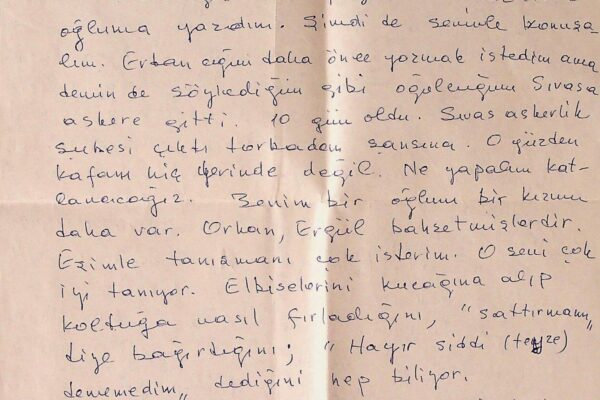 oğluma yazdım. Şimdi de seninle konuşa
lım. Erhan cığım daha önce yazmak istedim ama
demin de söylediğim gibi oğulcuğum Sıvasa
askere gitti. 10 gün oldu. Sıvas askerlik
şubesi çıktı torbadan şansına. O yüzden
kafam hiç yerinde değil. Ne yapalım kat-
lanacağız. Benim bir oğlum bir kızım
daha var. Orhan, Ergül bahsetmişlerdir.
Ezimle tanışmanı çok isterim. O seni çok
iyi tanıyor. Elbiselerini kucağına alıp
koltuğa nasıl fırladığını, "sattırmam"
diye bağırtığını; "Hayır siddi (teyze)
demedim" dediğini hep biliyor.